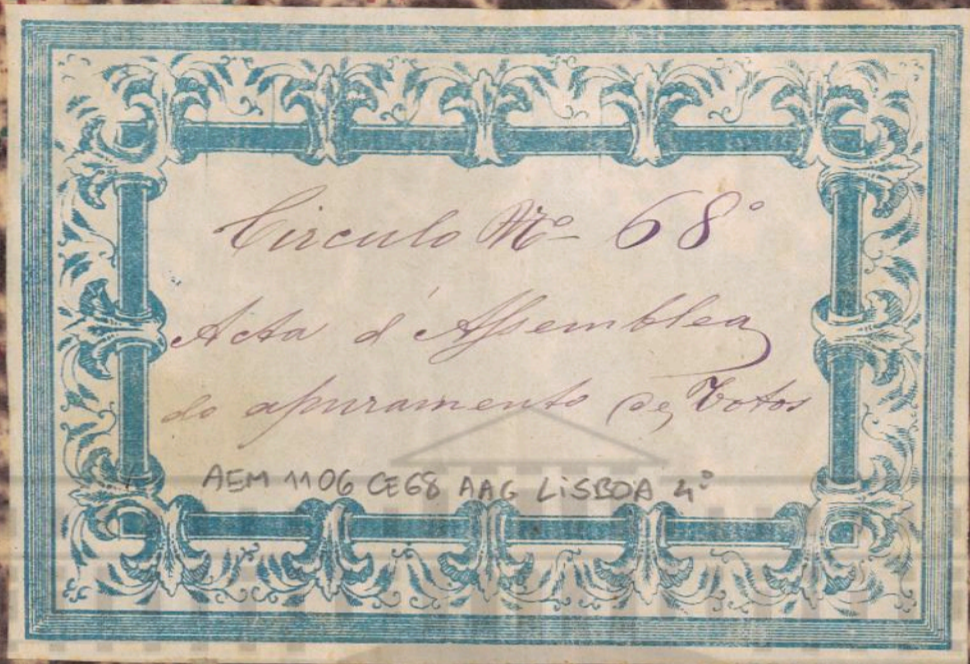 Circulo Nº 68º
Acta d'Assemblea
do apuramento de Votos
AEM 1106 CE68 AAG LISBOA 4º